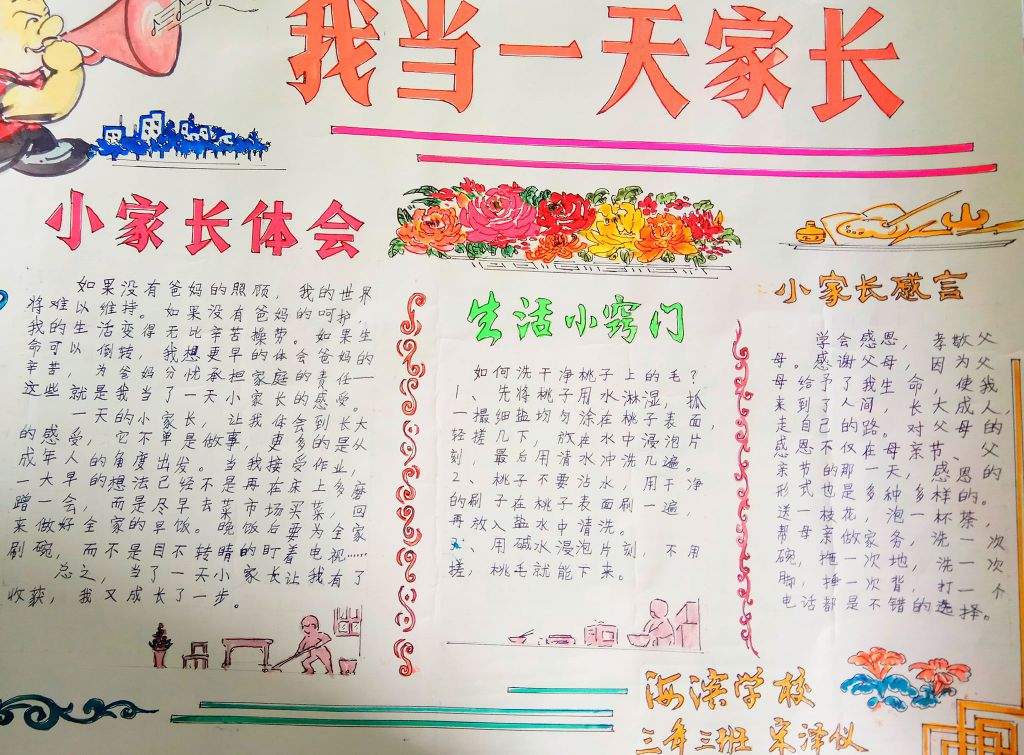 我当一天家长
小家长体会
如果没有爸妈的照顾，我的世界
将难以维持。如果没有爸妈的呵护，
我的生活变得无比辛苦操劳。如果生
命可以倒转，我想更早的体会爸妈的
辛苦，为爸妈分忧承担家庭的责任—
这些就是我当了一天小家长的感受。
一天的小家长，让我体会到长大
的感受，它不单是做事，更多的是从
成年人的角度出发。当我接受作业，
一大早的想法已经不是再在床上多磨
蹭一会，而是尽早去菜市场买菜，回
来做好全家的早饭。晚饭后要为全家
刷碗，而不是目不转睛的盯着电视……
总之，当了一天小家长让我有了
收获，我又成长了一步。
生活小窍门
如何洗干净桃子上的毛？
1、先将桃子用水淋湿，抓
一撮细盐均匀涂在桃子表面，
轻搓几下，放在水中浸泡片
刻，最后用清水冲洗几遍。
2、桃子不要沾水，用干净
的刷子在桃子表面刷一遍，
再放入盐水中清洗。
3、用碱水浸泡片刻，不用
搓，桃毛就能下来。
小家长感言
学会感恩，孝敬父
母。感谢父母，因为父
母给予了我生命，使我
来到了人间，长大成人，
走自己的路。对父母的
感恩不仅在母亲节、父
亲节的那一天，感恩的
形式也是多种多样的。
送一枝花，泡一杯茶，
帮母亲做家务，洗一次
碗，拖一次地，洗一次
脚，捶一次背，打一个
电话都是不错的选择。
海滨学校
三年三班 宋泽仪